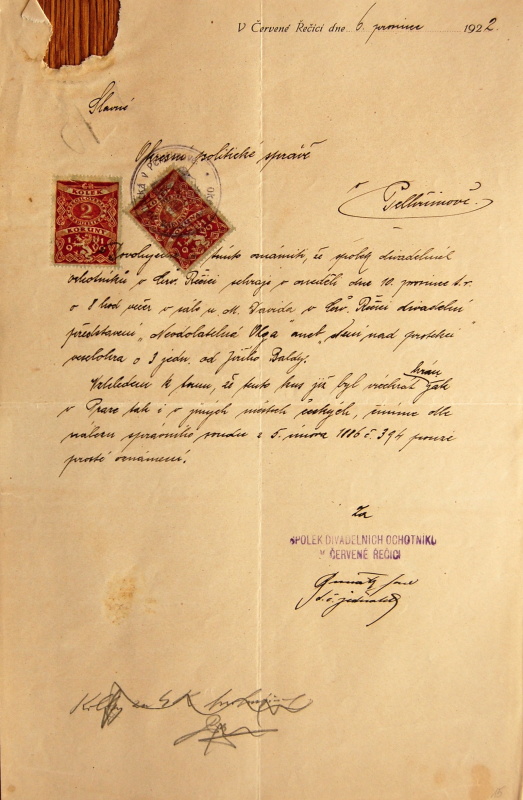 V Červené Řečici dne 6. prosince 1922.
Slavné
Okresní politické správě
v
Pelhřimově.
KOLEK
2
KORUNY
1
KORUNA
Dovolujeme si tímto oznámiti, že spolek divadelních
ochotníků v Červ. Řečici sehraje v neděli dne 10. prosince t.r.
o 8 hod večer v sále u M. Davida v Červ. Řečici divadelní
představení „Neodolatelná Olga" aneb „není nad protekci"
veselohra o 3 jedn. od Jiřího Baldy.
Vzhledem k tomu, že tento kus již byl všechrát hrán jak
v Praze tak i v jiných městech českých, činíme dle
nálezu správního soudu z 5. února 1886 č. 394 pouze
prosté oznámení.
Za
SPOLEK DIVADELNÍCH OCHOTNÍKŮ
V ČERVENÉ ŘEČICI
t.č. jednatel